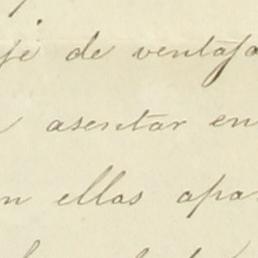 de ventaja
asentar en
n ellas apa